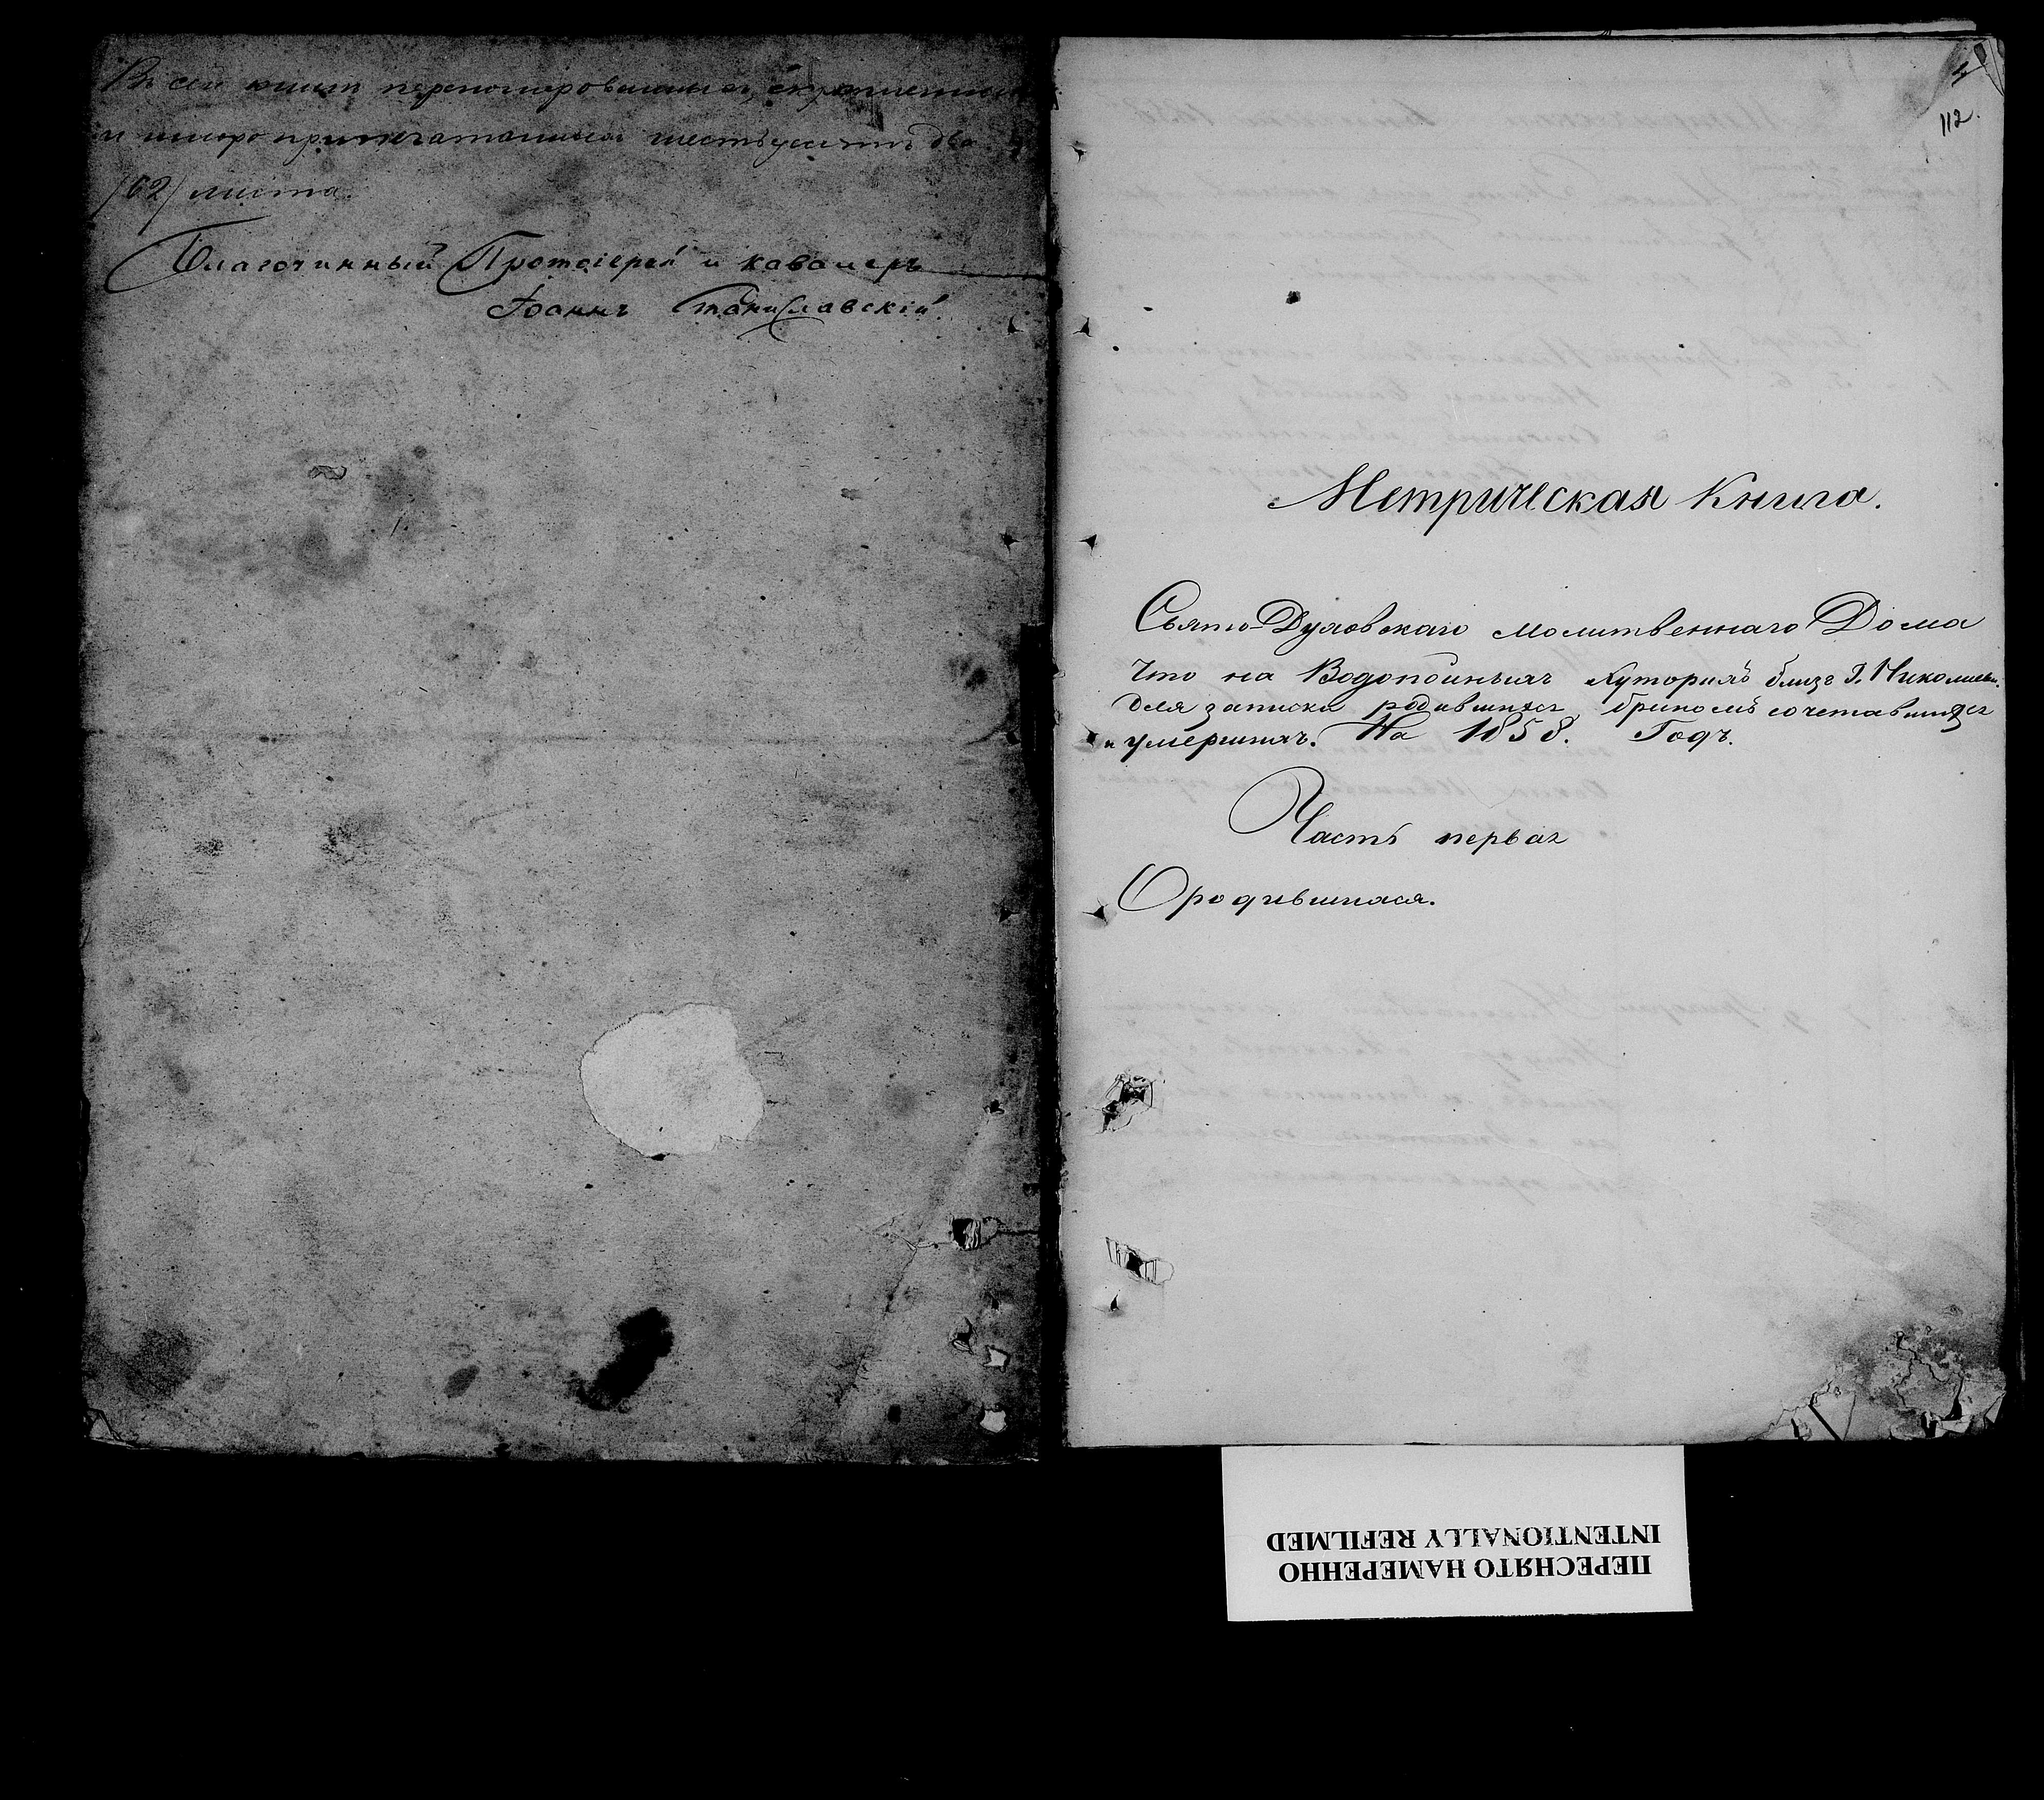 Въ сей книгѣ перенумерованныхъ, скрѣпленныхъ
и шнуро припечатанныхъ шестьдесятъ два
/62/ листа.
Благочинный Протоіерей и кавалеръ
Іоаннъ Станиславскій.
112.
Метрическая Книга.
Свято-Духовскаго молитвеннаго Дома
что на Водопойныхъ Хуторахъ близъ г. Николаева.
для записки родившихся, бракомъ сочетавшихся
и умершихъ. На 1858. Годъ.
Часть первая
О родившихся.
ПЕРЕСНЯТО НАМЕРЕННО
INTENTIONALLY REFILMED